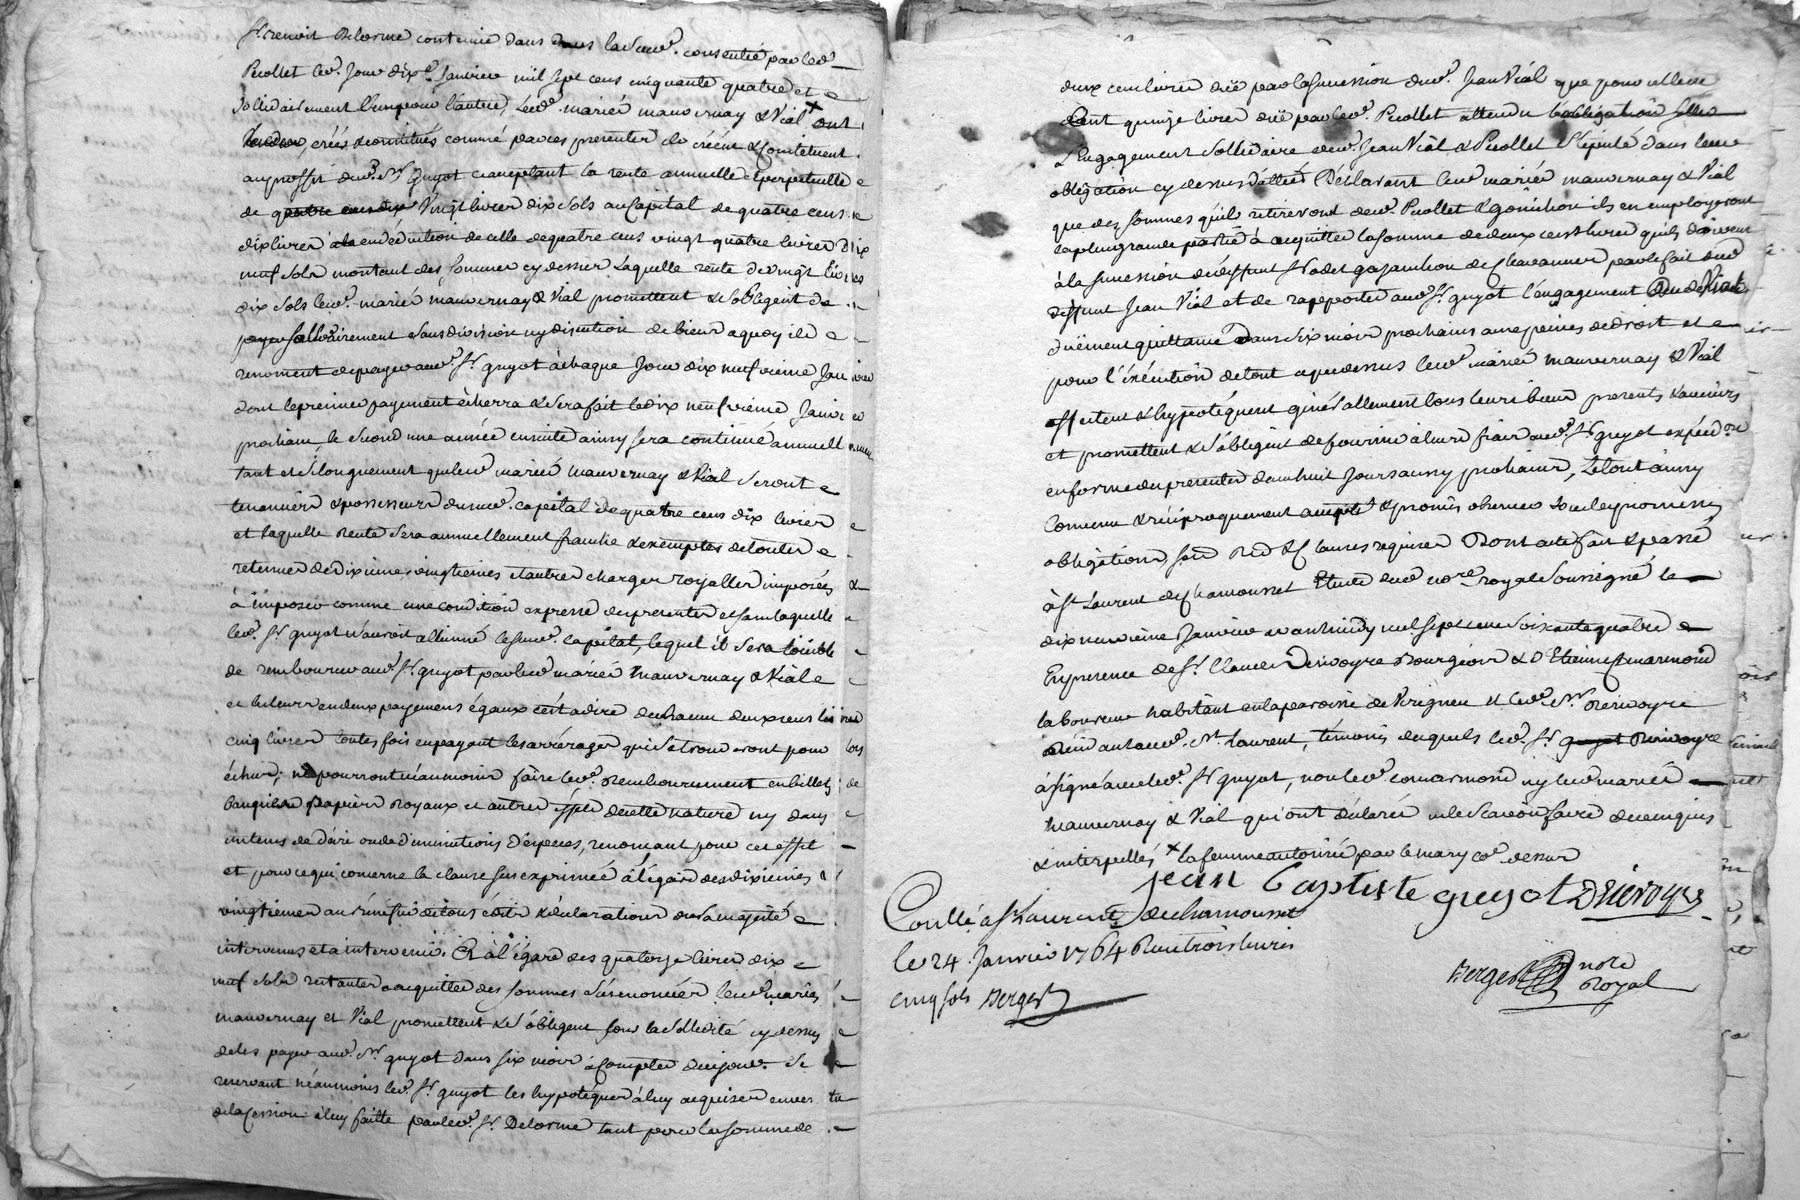 Sr. Benoit Delorme contenüe dans dans la Susd. consentie par led.
Picollet led. Jour dix e. Janvier mil sept cens cinquante quatre et
Sollidairement l'un pour l'autre, Lesd. mariés mauvernay & Vial x ont
vendu, créés & constitués comme par ces presentes ils créent & Constituent
au proffit dud. Sr. Guyot acceptant la rente annuelle & perpetuelle
de quatre cens dix Vingt livres dix sols au Capital de quatre cens
dix livres a la en deduction de celle de quatre cens vingt quatre livres dix
neuf sols montant des sommes cy dessus Laquelle rente de vingt livres
dix sols lesd. mariés mauvernay & Vial promettent & s'obligent de
payer sollidairement sans division ny discution de biens a quoy ils
renoncent de payer aud. Sr. guyot à chaque Jour dix neufvieme Janvier
dont le premier payement écherra & sera fait le dix neufvieme Janvier
prochain, le second une année ensuite ainsy sera continüé annuellement
tant et si longuement que lesd. mariés mauvernay & Vial seront
tenanciers & possesseurs du susd. capital de quatre cens dix livres
et laquelle rente sera annuellement franche & exempte de toutes
retenues de dixiemes, vingtiemes et autres charges royalles imposées &
à imposer comme une condition expresse des presentes et sans laquelle
led. Sr. guyot n'auroit allienné le susd. capital, lequel il sera loisible
de rembourser aud. Sr. guyot par lesd. mariés Mauvernay & Vial
et les leurs en deux payemens égaux c'est a dire de chacun deux cens
cinq livres toutes fois en payant les arrérages qui se trouveront pour lors
échus; ne pourront néanmoins faire led. Remboursement en billets de
banque papiers Royaux et autres effets de cette nature ny dans
un tems de d'cri ou de diminutions d'éspeces, renonçant pour cet effet
et pour ce qui concerne la clause sus exprimée à l'égard des dixiemes &
vingtiemes au bénéfice de tous édits & déclarations de sa majesté
intervenus et a intervenir. Et à l'égard des quatorze livres dix
neuf sols restantes a acquitter des sommes susénoncées lesd. mariés
mauvernay et Vial promettent & s'obligent sous la sollidité cy dessus
de les payer aud. Sr. guyot dans six mois à compter de ce jour. Se
reservant néanmoins led. Sr. guyot les hypoteques à luy acquises en vertu
de la cession à luy faitte par led. Sr. Delorme tant pour la somme de
deux cens livres düe par la succession dud. Jean Vial que pour celle de
Cent quinze livres düe par led. Picollet attendu l'obligation solli
& Engagement sollidaire desd. Jean Vial & Picollet stipulé dans leur
obligation cy dessus dattée Déclarant lesd. mariés mauvernay & Vial
que des sommes qu'ils retireront desd. Picollet & gonichon ils en employeront
la plus grande partie à acquitter la somme de deux cens livres qu'ils doivent
à la succession de deffunt Sr. de Chavannes par le fait dud.
deffunt Jean Vial et de rapporter aud. Sr. guyot l'engagement dud. Vial
düement quittancé dans six mois prochains aux peines de droit et
pour l'éxécution de tout ce que dessus lesd. mariés mauvernay & Vial
affectent & hypotéquent généralement tous leurs biens presents & avenirs
et promettent & s'obligent de fournir à leurs frais aud. Sr. guyot expédon.
en forme des presentes dans huit jours aussy prochains, Le tout ainsy
convenu & réciproquement accepté & promis observer sous les promesses
obligations, serm. Ren. & Clauses requises Dont acte fait & passé
à St Laurent de Chamousset Etude dud. nore. royal soussigné le
dix neuvieme Janvier avant midy mil sept cens soixante quatre
En presence de Sr. Claude Derivoyre Bourgeois & d'Etienne Comarmond
laboureur habitant en la paroisse de Brigneu & led. Sr. Derivoyre
aud. St. Laurent, témoins desquels led. Sr. guyot Derivoyre
à signé avec led. Sr. guyot, non led. comarmond ny lesd. mariés
Mauvernay & Vial qui ont déclaré ne le savoir faire de ce enquis
& interpellés x la femme autorisée par le mary co. dessus
jean Baptiste guyot Derivoyre
Conllé. a St Laurent de chamousset
le 24 Janvier 1764 Reçu trois livres
cinq sols Berger
Berger nore
Royal